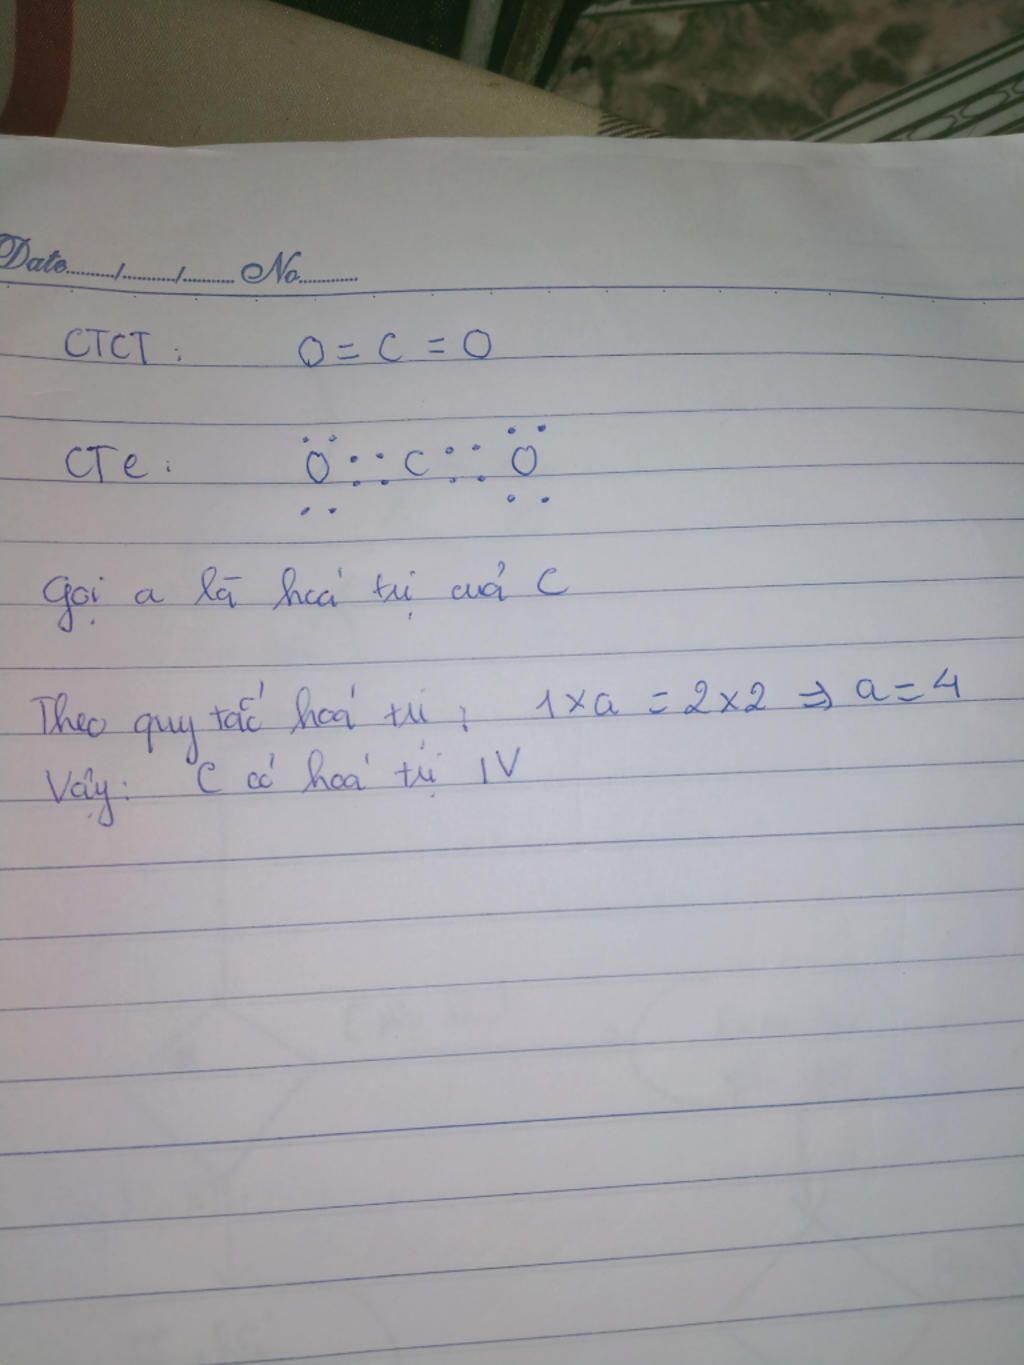 Date......../......../........ No..........
CTCT: O = C = O
CTe: O :: C :: O
Gọi a là hoá trị của C
Theo quy tắc hoá trị: 1×a = 2×2 ⇒ a = 4
Vậy: C có hoá trị IV